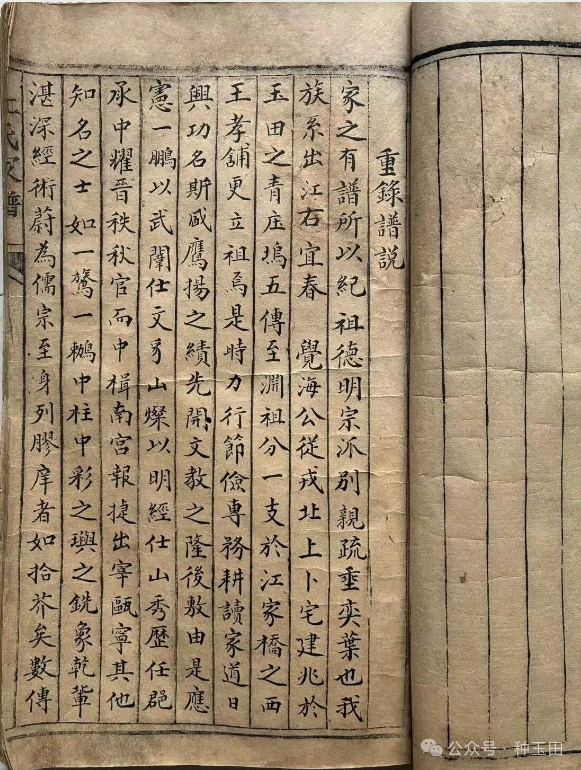 重錄譜說
家之有譜所以紀祖德明宗派別親疏垂奕葉也我
族系出江右宜春 覺海公從戎北上卜宅建兆於
玉田之青庄塢五傳至淵祖分一支於江家橋之西
王孝舖更立祖焉是時力行節儉專務耕讀家道日
興功名斯盛鷹揚之績先開文教之隆後敷由是應
憲一鵬以武闈仕文豸山燦以明經仕山秀歷任郡
丞中耀晉秩秋官而中楫南宮報捷出宰甌寧其他
知名之士如一鶱一鶼中柱中彩之璵之銑象乾輩
湛深經術蔚為儒宗至身列膠庠者如拾芥矣數傳
氏家譜
公众号·种玉田